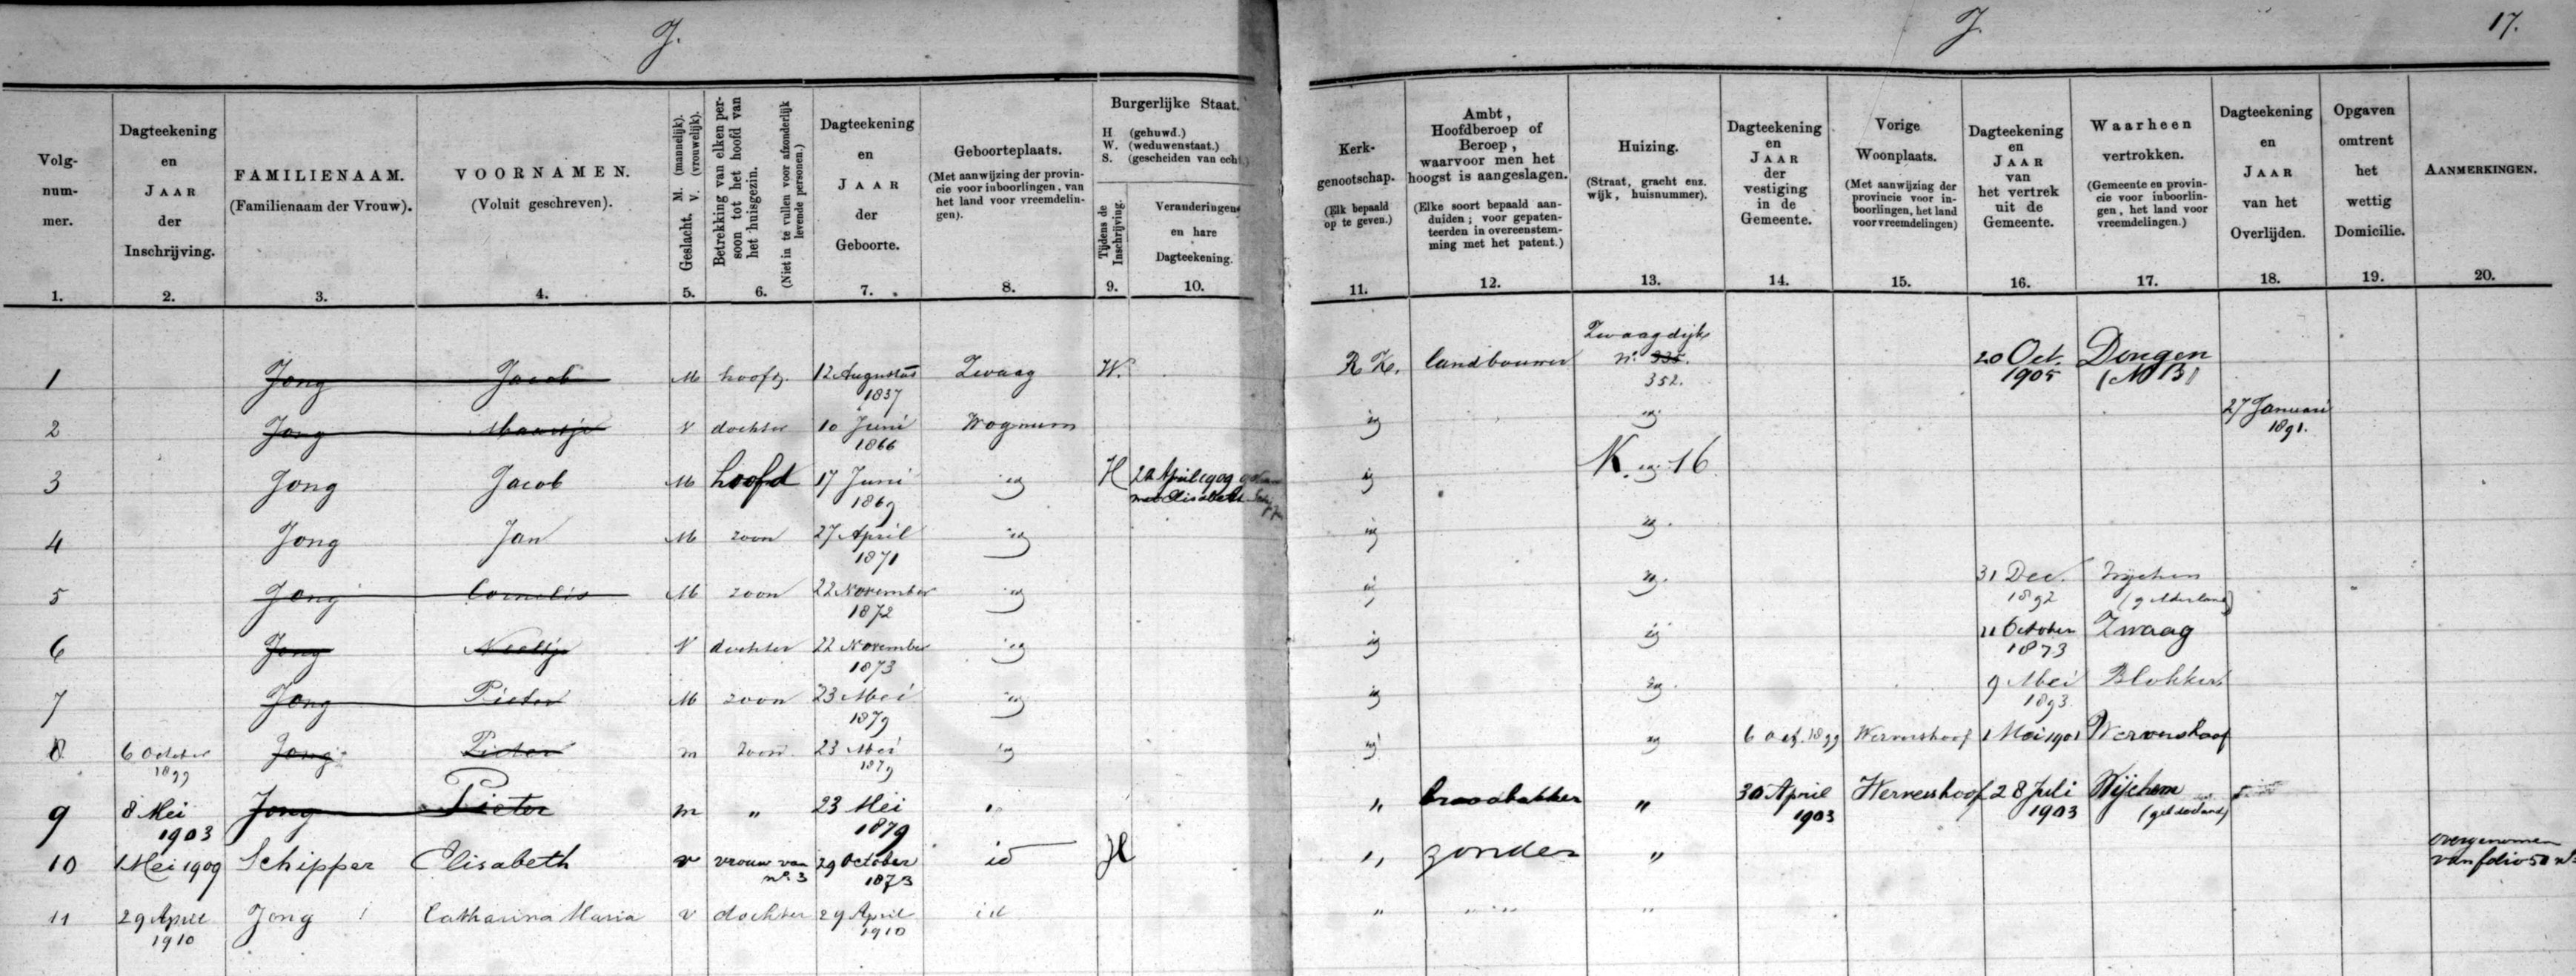 J.
J.
17.
Volg-
num-
mer.
1.
Dagteekening
en
JAAR
der
Inschrijving.
2.
FAMILIENAAM.
(Familienaam der Vrouw).
3.
VOORNAMEN.
(Voluit geschreven).
4.
Geslacht. M. (mannelijk).
V. (vrouwelijk).
5.
Betrekking van elken per-
soon tot het hoofd van
het huisgezin.
(Niet in te vullen voor afzonderlijk
levende personen.)
6.
Dagteekening
en
JAAR
der
Geboorte.
7.
Geboorteplaats.
(Met aanwijzing der provin-
cie voor inboorlingen, van
het land voor vreemdelin-
gen).
8.
Burgerlijke Staat.
H (gehuwd.)
W. (weduwenstaat.)
S. (gescheiden van echt.)
Tijdens de
Inschrijving.
9.
Veranderingen
en hare
Dagteekening.
10.
Kerk-
genootschap.
(Elk bepaald
op te geven.)
11.
Ambt,
Hoofdberoep of
Beroep,
waarvoor men het
hoogst is aangeslagen.
(Elke soort bepaald aan-
duiden; voor gepaten-
teerden in overeenstem-
ming met het patent.)
12.
Huizing.
(Straat, gracht enz.
wijk, huisnummer).
13.
Dagteekening
en
JAAR
der
vestiging
in de
Gemeente.
14.
Vorige
Woonplaats.
(Met aanwijzing der
provincie voor in-
boorlingen, het land
voor vreemdelingen)
15.
Dagteekening
en
JAAR
van
het vertrek
uit de
Gemeente.
16.
Waarheen
vertrokken.
(Gemeente en provin-
cie voor inboorlin-
gen, het land voor
vreemdelingen.)
17.
Dagteekening
en
JAAR
van het
Overlijden.
18.
Opgaven
omtrent
het
wettig
Domicilie.
19.
AANMERKINGEN.
20.
1 Jong Jacob M hoofd. 12 Augustus 1837 Zwaag W. R K. landbouwer Zwaagdijk No. 335. 352. 20 Oct. 1905 Dongen (N B)
2 Jong Maartje V dochter 10 Juni 1866 Wognum id id 27 Januari 1891.
3 Jong Jacob M hoofd 17 Juni 1869 id H 22 April 1909 met Elisabeth id K. id. 16
4 Jong Jan M zoon 27 April 1871 id id id.
5 Jong Cornelis M zoon 22 November 1872 id id id. 31 Dec. 1892 Wychen (gelderland)
6 Jong Neeltje V dochter 22 November 1873 id id id 11 October 1873 Zwaag
7 Jong Pieter M zoon 23 Mei 1879 id id id. 9 Mei 1893 Blokker
8 6 October 1899 Jong Pieter m zoon 23 Mei 1879 id id id 6 Oct. 1899 Wervershoof 1 Mei 1901 Wervershoof
9 8 Mei 1903 Jong Pieter m " 23 Mei 1879 " " broodbakker " 30 April 1903 Wervershoof 28 Juli 1903 Wijchem (gelderland)
10 1 Mei 1909 Schipper Elisabeth v vrouw van no. 3 29 October 1873 id H " zonder " overgenomen van folio 50
11 29 April 1910 Jong Catharina Maria v dochter 29 April 1910 id " " " "